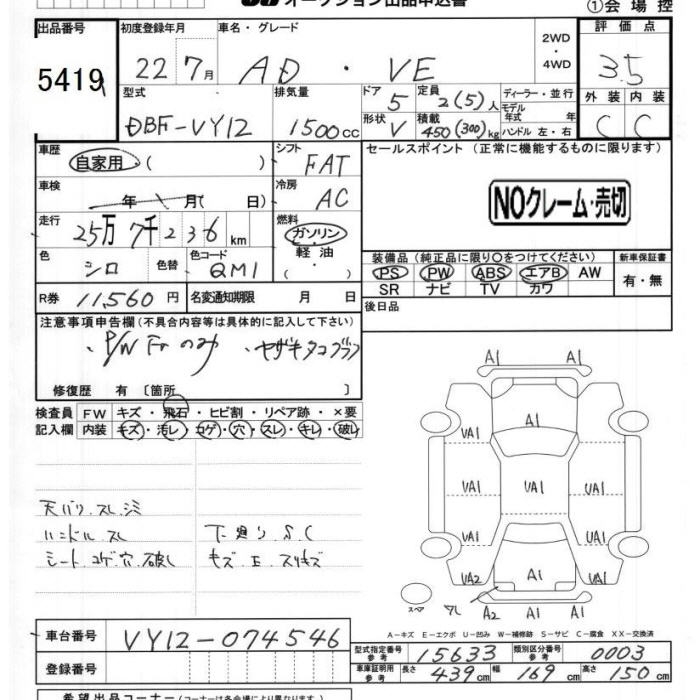 オークション出品申込書
①会場控
出品番号 初度登録年月 車名・グレード 2WD・4WD 評価点
5419 22 7月 AD・VE 3.5
型式 排気量 ドア 定員 ディーラー・並行 外装 内装
DBF-VY12 1500cc 5 2(5)人 モデル年式 年 C C
形状 V 積載 450(300)kg ハンドル 左・右
車歴 自家用 ( ) シフト FAT セールスポイント (正常に機能するものに限ります)
車検 年 月( 日) 冷房 AC
NOクレーム・売切
走行 25万7千236km 燃料 ガソリン・軽油・( )
色 シロ 色替 色コード QM1
装備品 (純正品に限り○をつけてください) 新車保証書
PS PW ABS エアB AW 有・無
SR ナビ TV カワ
R券 11,560円 名変通知期限 月 日 後日品
注意事項申告欄 (不具合内容等は具体的に記入して下さい)
・P/W Frのみ ・ヤザキタコグラフ
修復歴 有 〔箇所 〕
検査員記入欄 FW キズ・飛石・ヒビ割・リペア跡・×要
内装 キズ・汚レ・コゲ・穴・スレ・キレ・破レ
天バリ.スレ.シミ
ハンドル スレ 下廻り.S C
シート.コゲ.穴.破レ キズ.E.スリキズ
A1 A1
A1
VA1 VA1
VA1 VA1 VA1
VA1 VA1
VA2 A1 A1
スペア ワレ A2 A1 A1
A-キズ E-エクボ U-凹み W-補修跡 S-サビ C-腐食 XX-交換済
車台番号 VY12-074546
型式指定番号 参考 15633 類別区分番号 参考 0003
登録番号 車庫証明用 参考 長さ 439cm 幅 169cm 高さ 150cm
希望出品コーナー (コーナーは各会場により異なります)